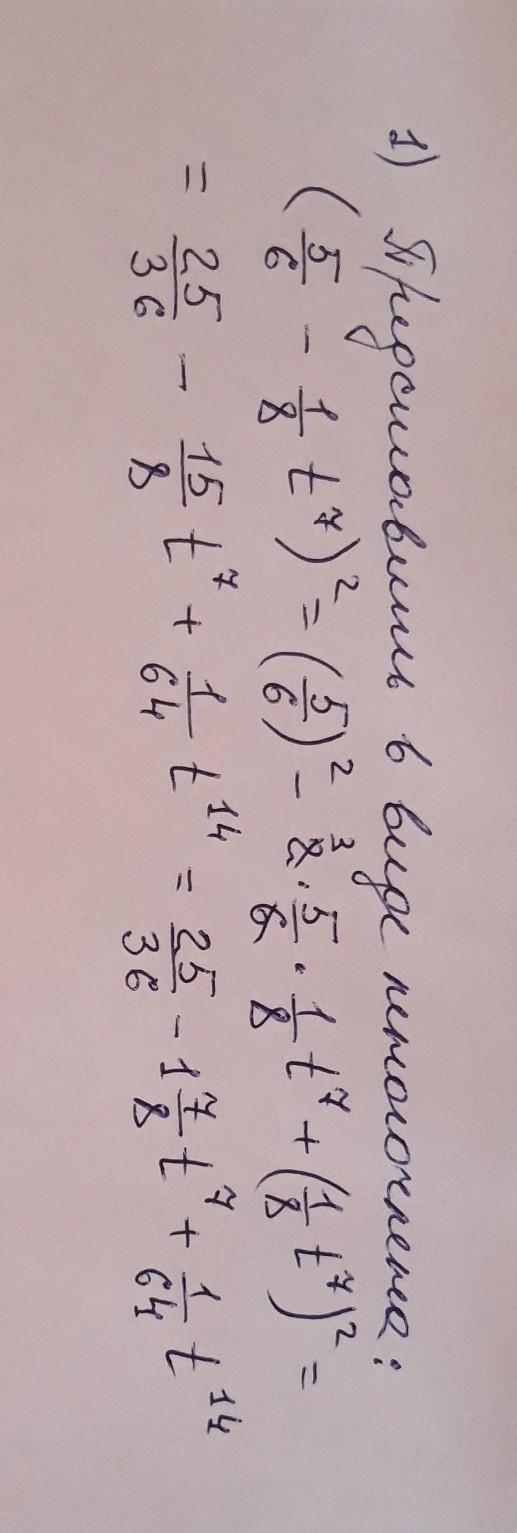 1) Представить в виде многочлена:
(5/6 - 1/8 t⁷)² = (5/6)² - 2³ · 5/6 · 1/8 t⁷ + (1/8 t⁷)² =
= 25/36 - 15/8 t⁷ + 1/64 t¹⁴ = 25/36 - 1 7/8 t⁷ + 1/64 t¹⁴